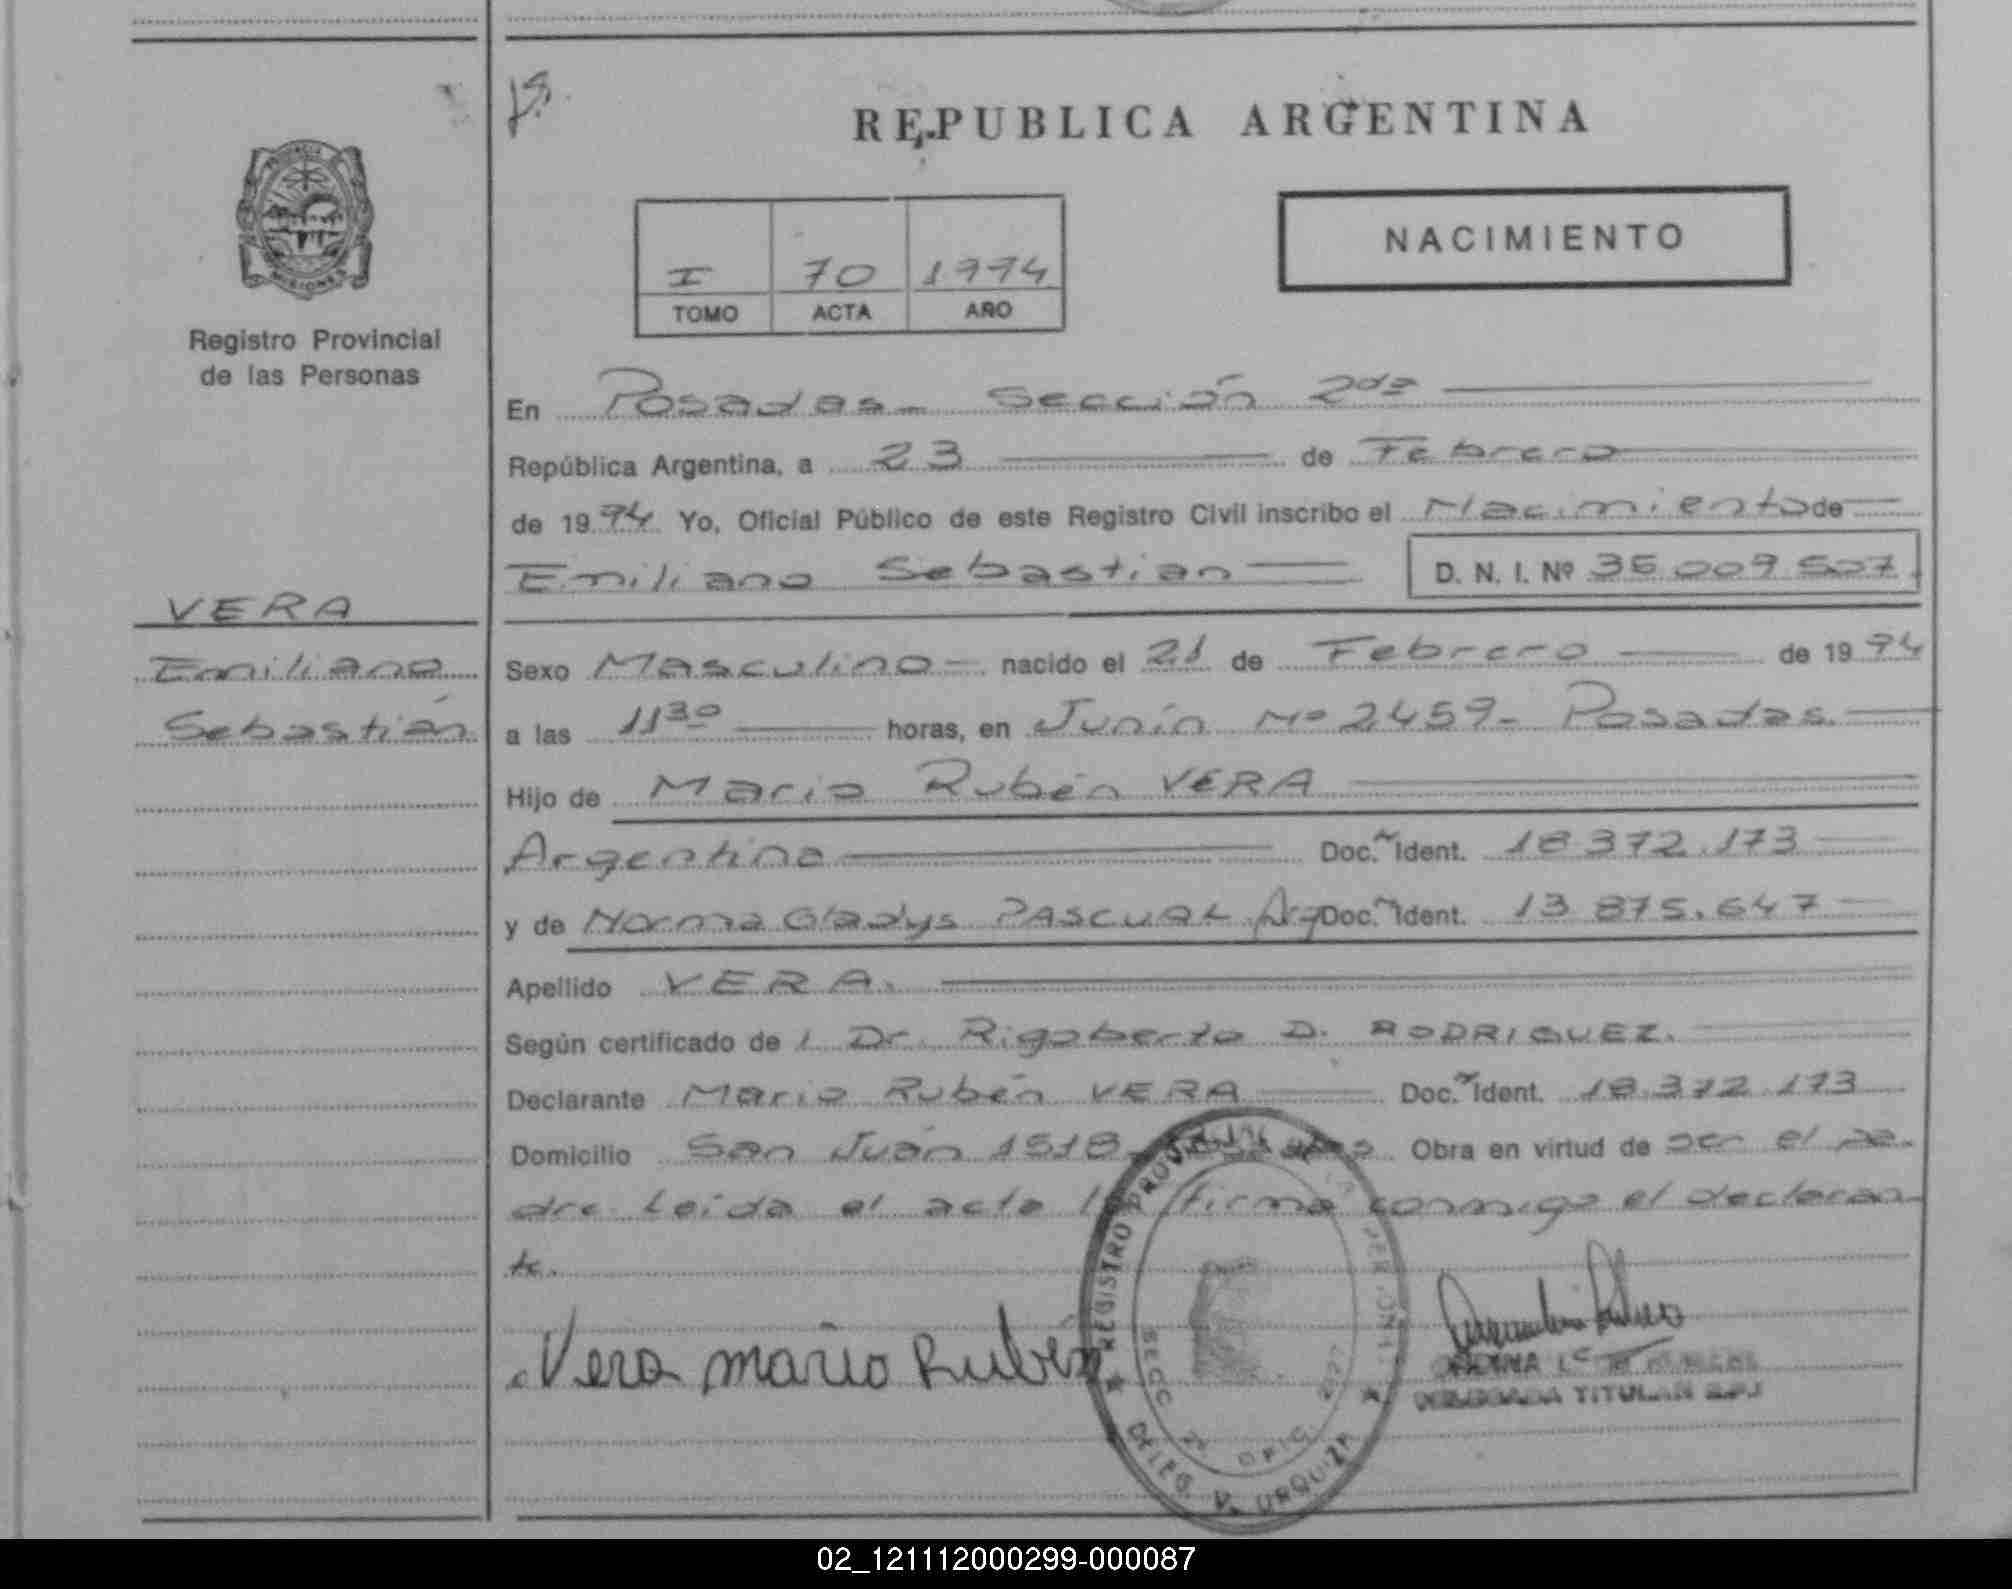 REPUBLICA ARGENTINA
NACIMIENTO
I 70 1994
TOMO ACTA AÑO
PROVINCIA
MISIONES
Registro Provincial
de las Personas
En Posadas - Sección 2da
República Argentina, a 23 de Febrero
de 1994 Yo, Oficial Público de este Registro Civil inscribo el Nacimiento de
Emiliano Sebastian D. N. I. Nº 35.009.507.
VERA
Emiliano
Sebastián
Sexo Masculino - nacido el 21 de Febrero de 1994
a las 11 30 horas, en Junín Nº 2459 - Posadas.
Hijo de Mario Rubén VERA
Argentino Doc. Ident. 18.372.173
y de Norma Gladys PASCUAL Arg Doc. Ident. 13.875.647
Apellido VERA.
Según certificado de l Dr. Rigoberto D. RODRIGUEZ.
Declarante Mario Rubén VERA Doc. Ident. 18.372.173
Domicilio San Juan 1518 Obra en virtud de ser el pa-
dre. Leida el acta la firma conmigo el declaran-
te.
Vera mario Rubén
REGISTRO PROVINCIAL
SECC 2ª OFIC.
DELEG. V. URQUIZA
TITULAR
02_121112000299-000087